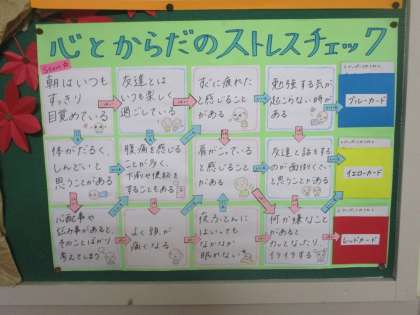 心とからだのストレスチェック
Start
朝はいつも
すっきり
目覚めている
友達とは
いつも楽しく
過ごしている
すぐに疲れた
と感じること
がある
勉強する気が
起こらない時が
ある
ブルーカード
体がだるく、
しんどいと
思うことがある
腹痛を感じる
ことが多く、
下痢や便秘を
することもある
肩がこっている
と感じること
がある
友達と話をする
のが面倒くさい
と思うことがある
イエローカード
心配事や
悩み事があると、
そのことばかり
考えてしまう
よく頭が
痛くなる
夜、ふとんに
はいっても
なかなか
眠れない
何か嫌なこと
があると
カッとなったり、
イライラする
レッドカード